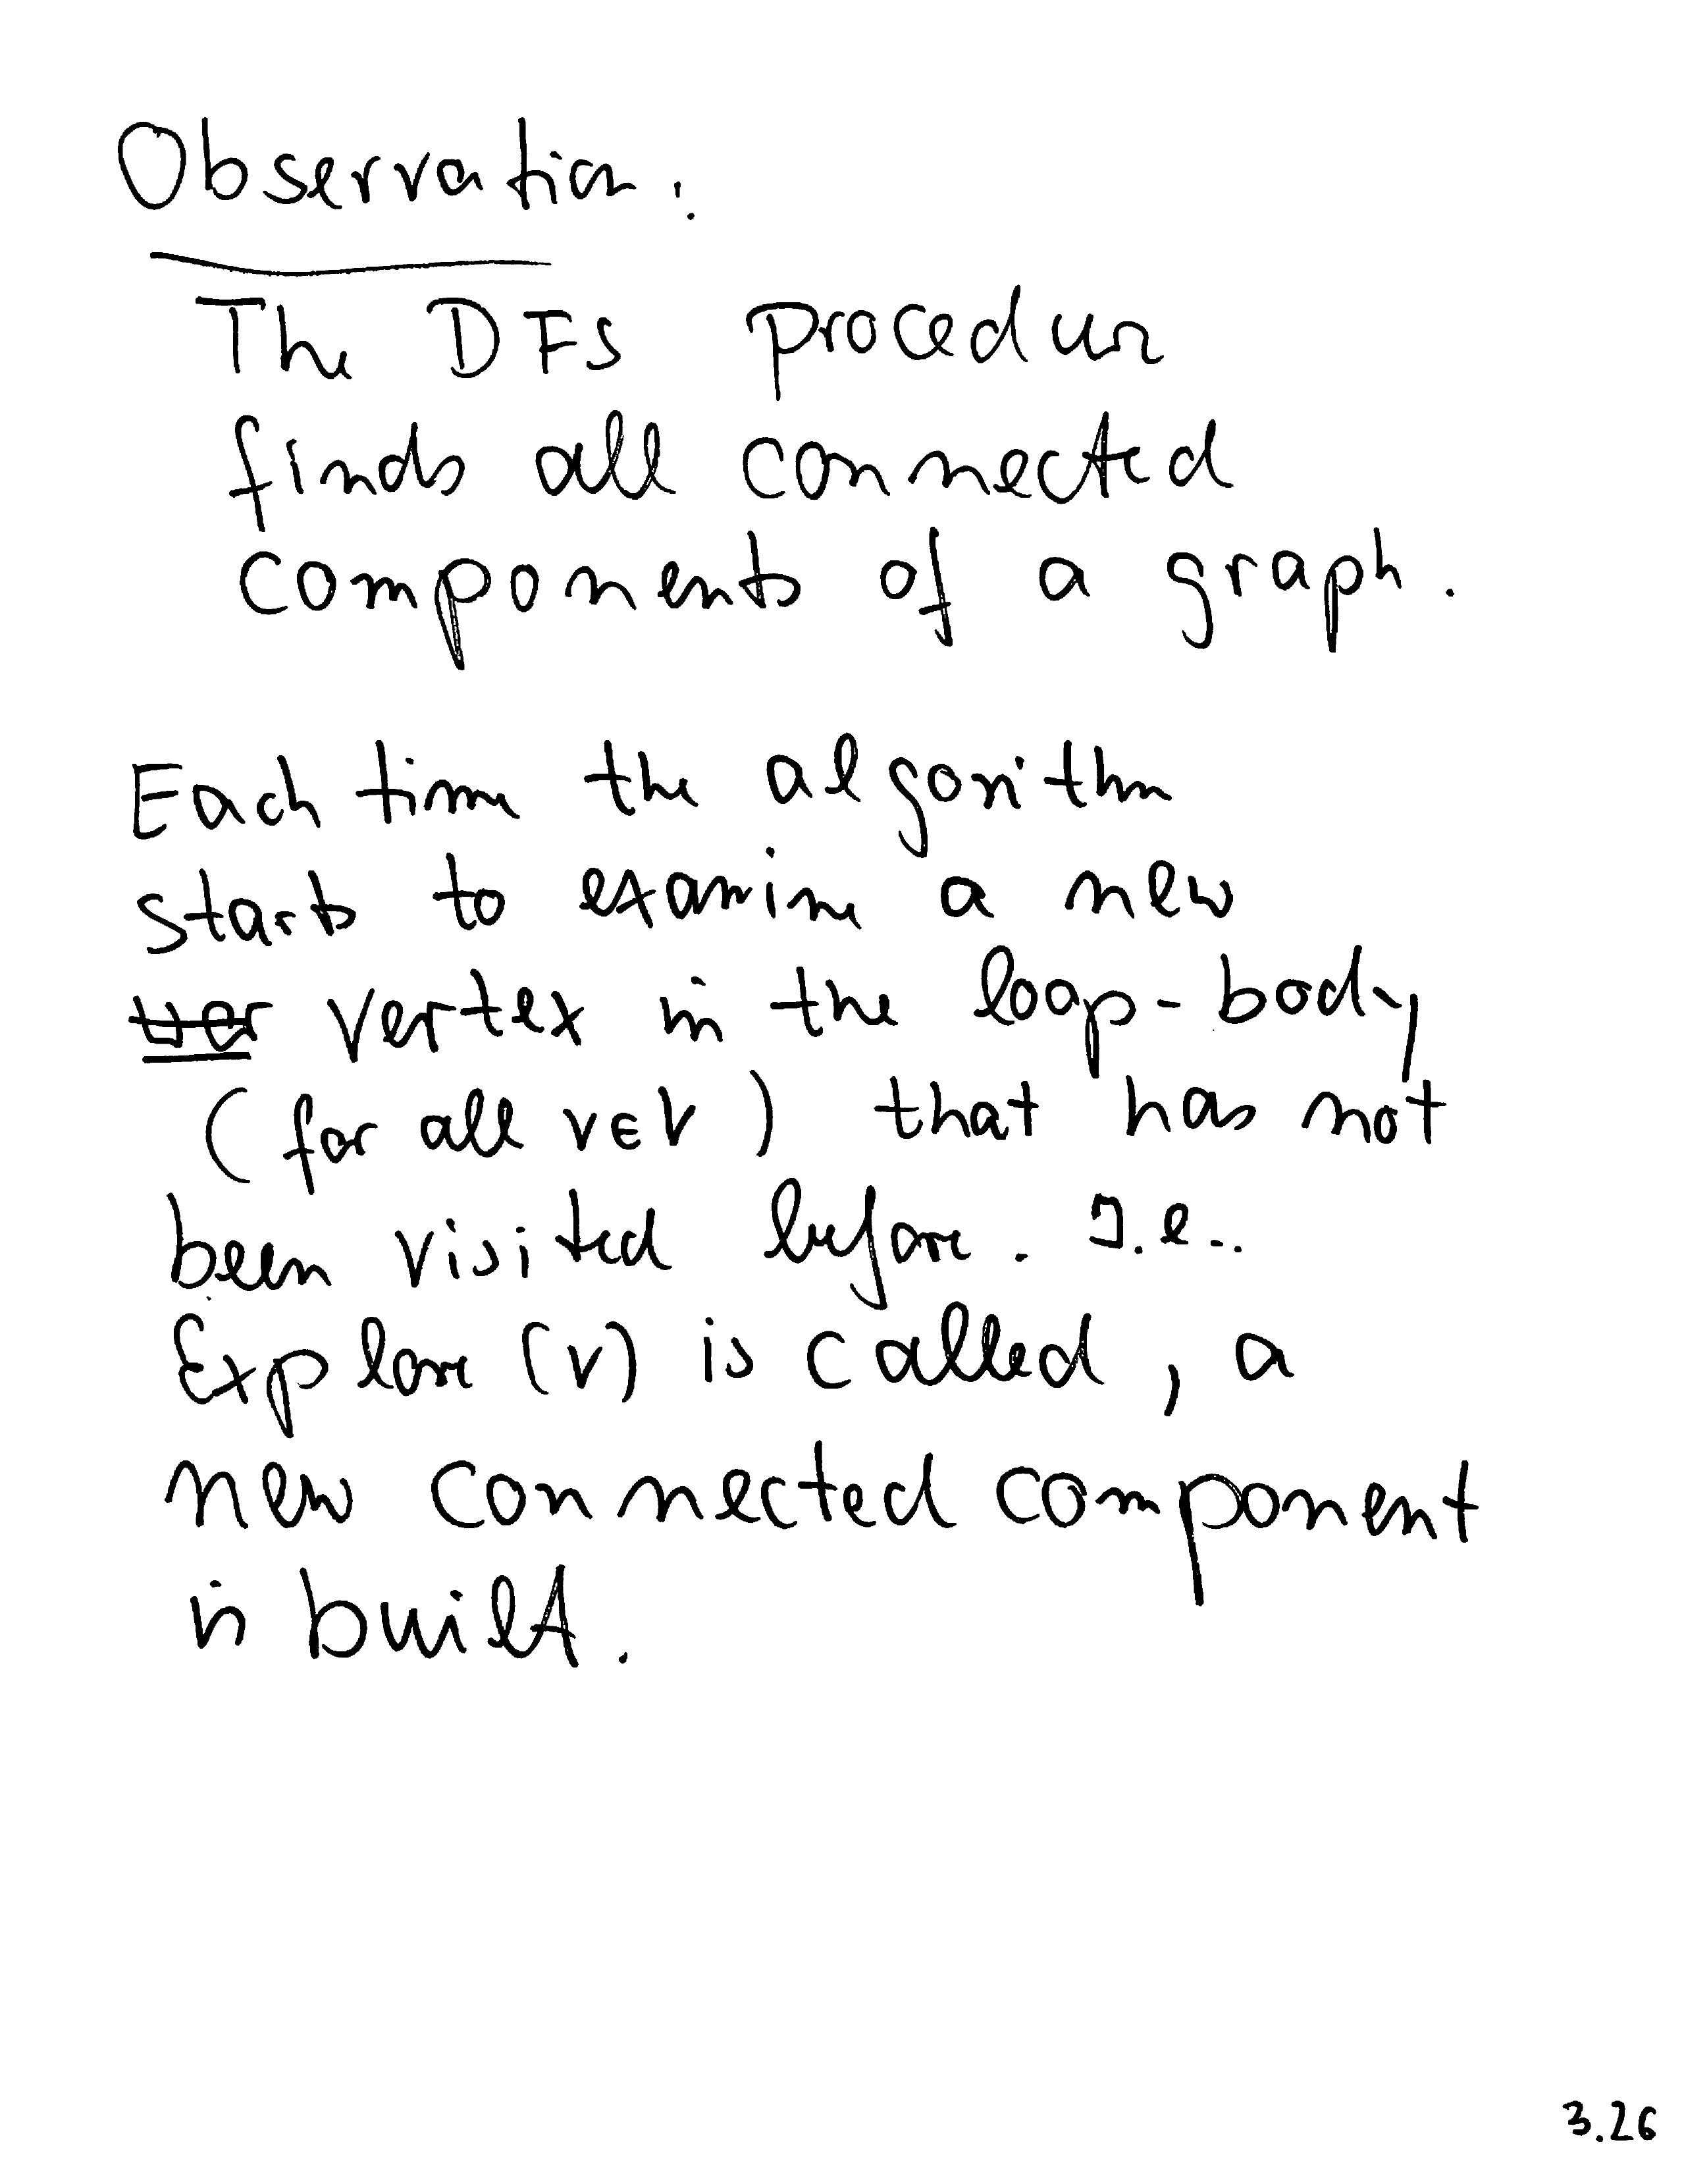 Observation:
The DFS procedure
finds all connected
components of a graph.
Each time the algorithm
starts to examine a new
vertex in the loop-body
(for all v∈V) that has not
been visited before. I.e..
Explore (v) is called, a
new connected component
is built.
3.26